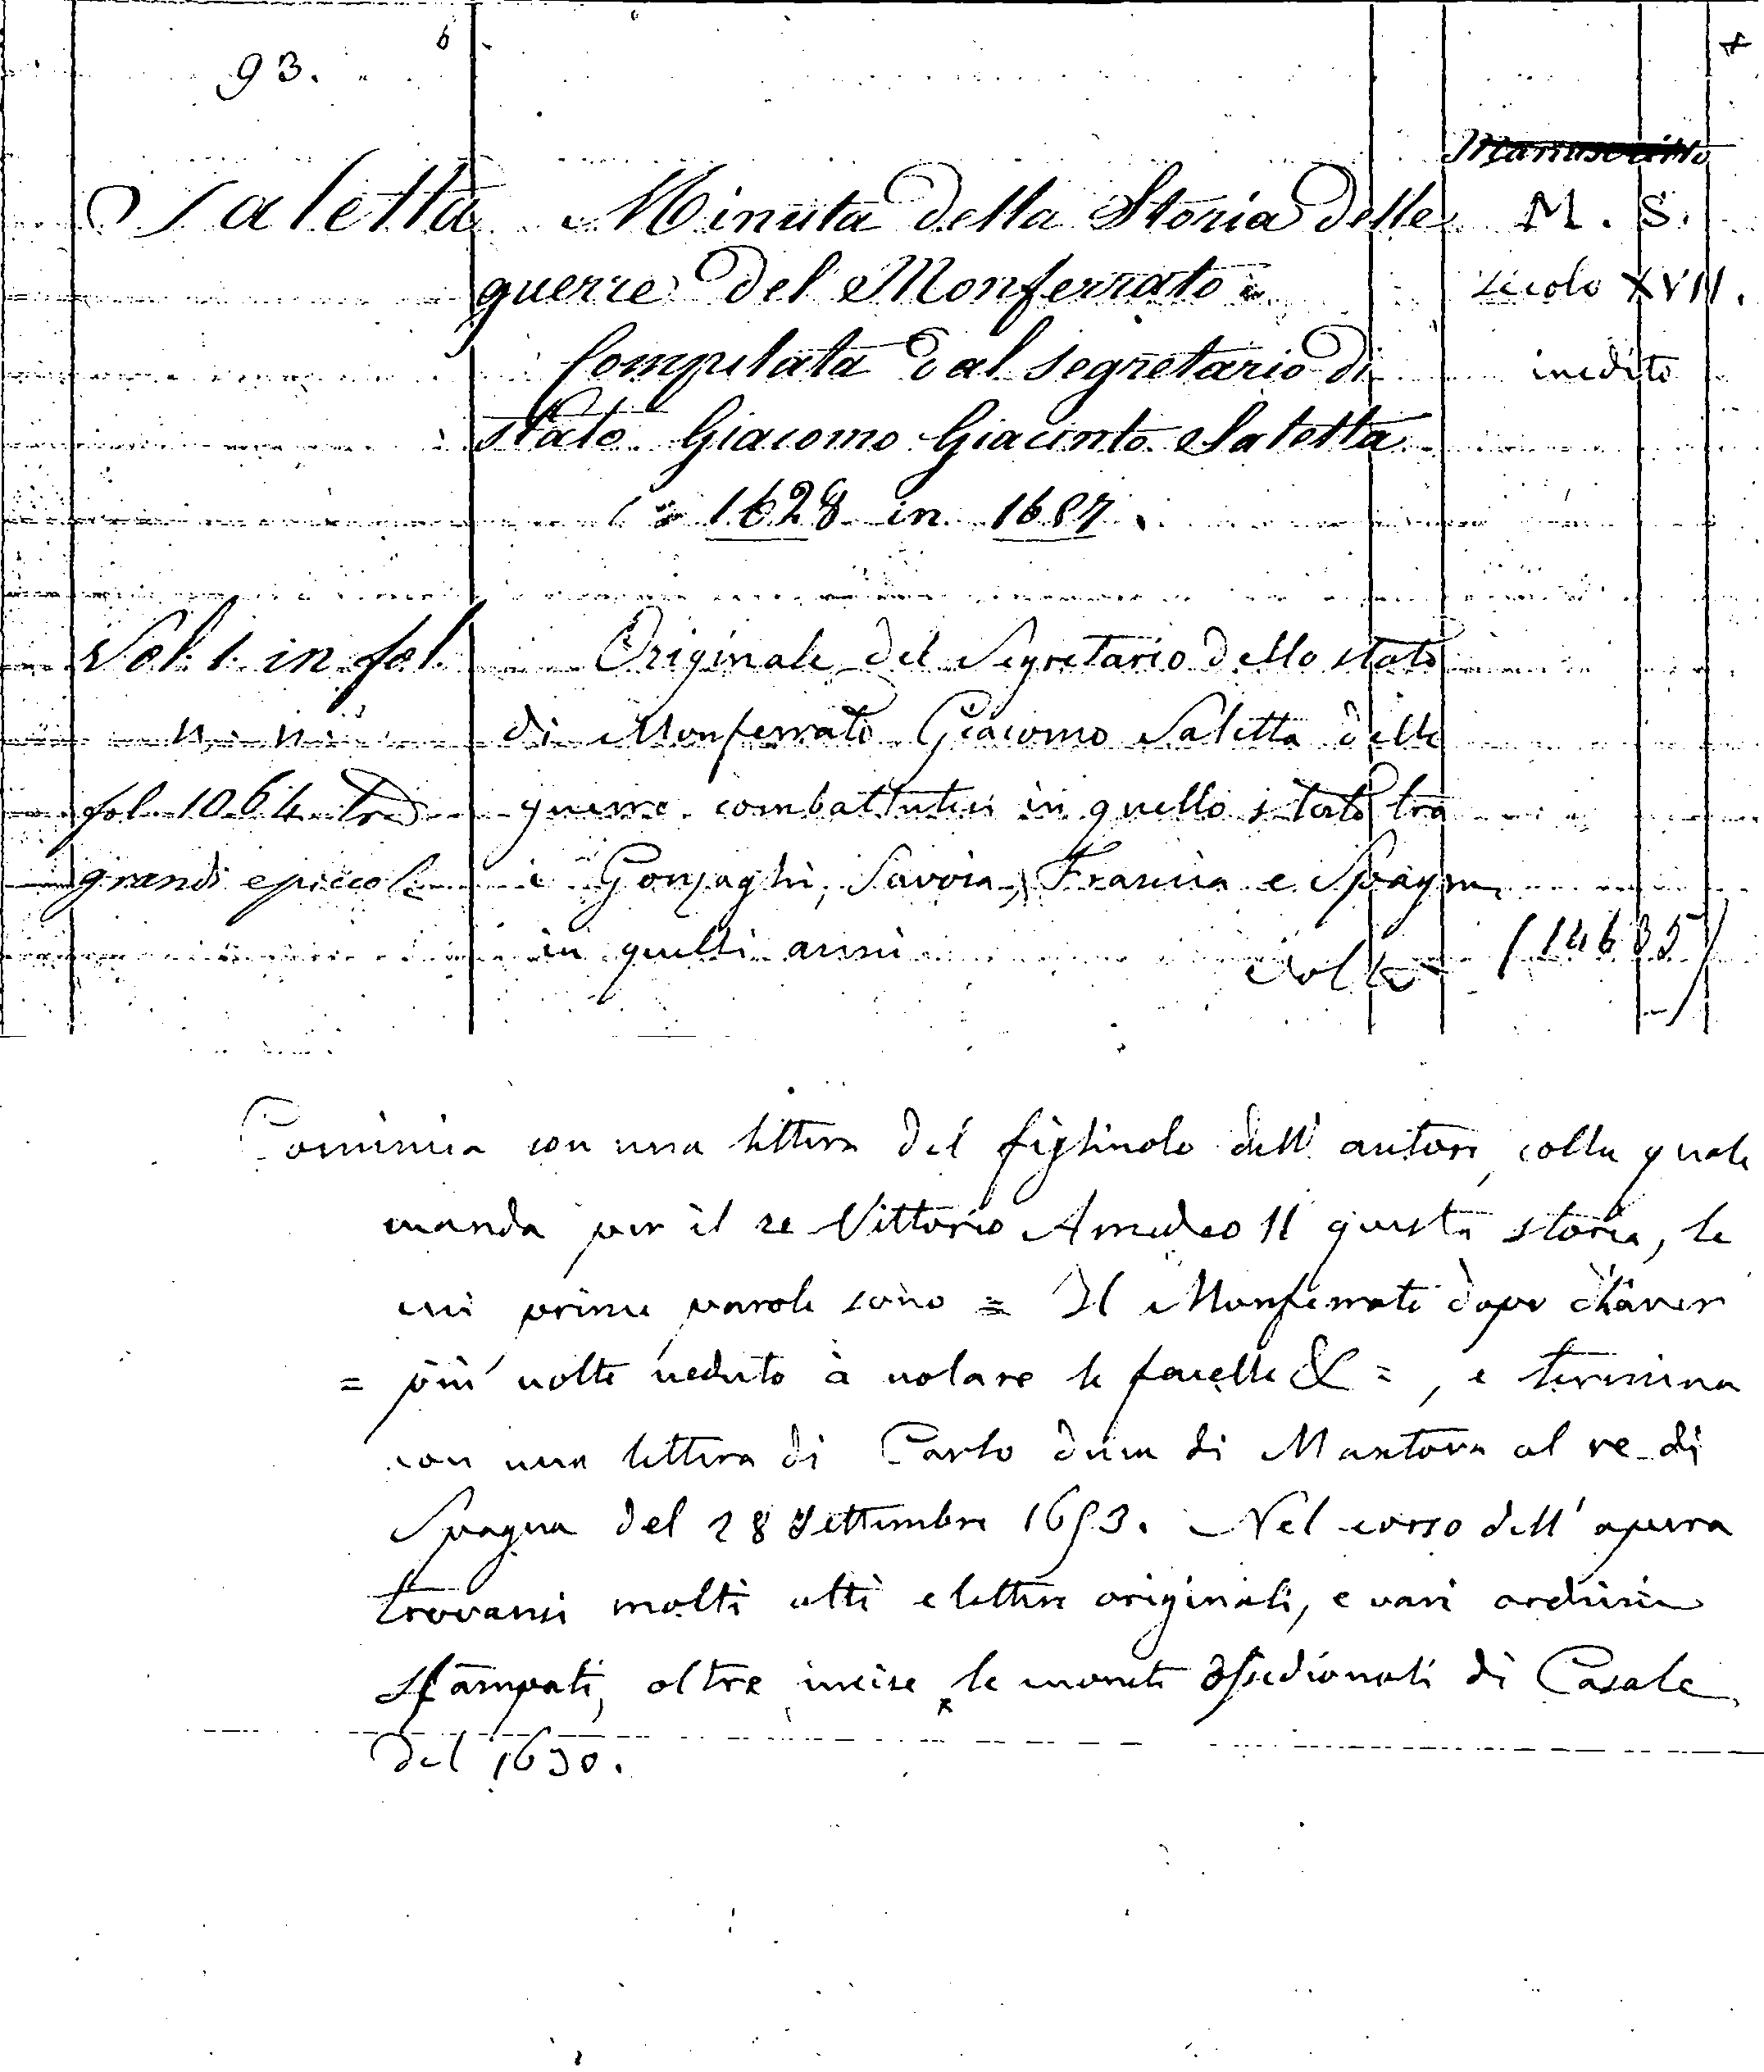 93.
6
Manuscritto
Saletta Minuta della Storia delle M. S.
guerre del Monferrato secolo XVII.
Compilata dal segretario di inedito
stato Giacomo Giacinto Saletta
1628 in 1687.
Vol. 1. in fol. Originale del Segretario dello stato
n. n. di Monferrato Giacomo Saletta delle
fol. 1064 tra guerre combattutesi in quello stato tra
grandi e piccoli i Gonzaghi, Savoia, Francia e Spagna
in quelli anni (14685)
Comincia con una lettera del figliuolo dell'autore, colla quale
manda per il re Vittorio Amedeo II questa storia, le
cui prime parole sono = Il Monferrato dopo d'haver
= più volte veduto à volare le facelle & = , e termina
con una lettera di Carlo duca di Mantova al re di
Spagna del 28 Settembre 1693. Nel corso dell'opera
trovansi molti atti e lettere originali, e vari ordini
stampati, oltre incise le monete ossidionali di Casale
del 1630.